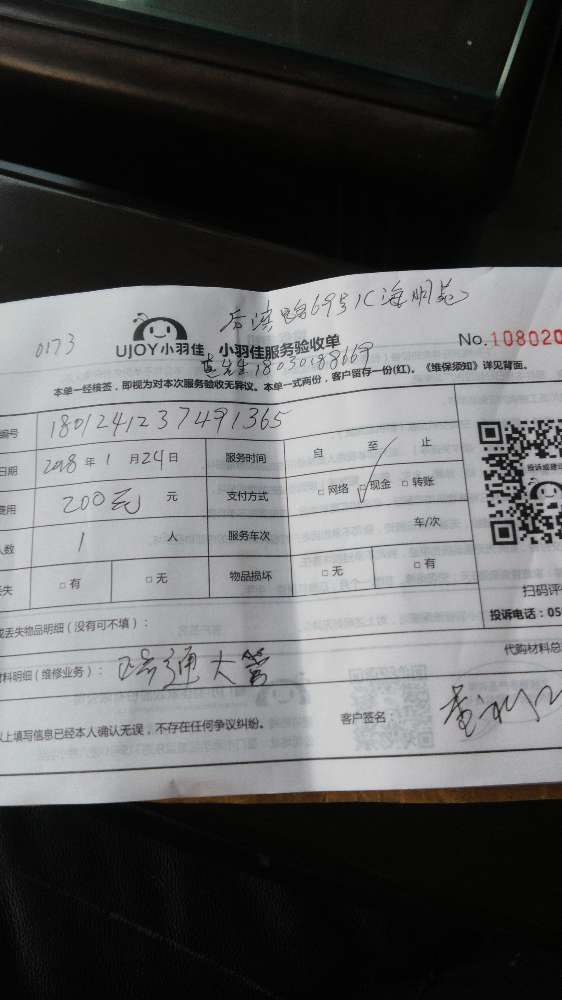 后滨路69号1C海明苑
0173
UJOY小羽佳 小羽佳服务验收单
No.108020
先生18030188669
本单一经核签，即视为对本次服务验收无异议。本单一式两份，客户留存一份(红)。《维保须知》详见背面。
编号 180124123749​1365
日期 2018 年 1 月 24 日 服务时间 自 至 止
费用 200元 元 支付方式 □ 网络 □ 现金 □ 转账
人数 1 人 服务车次 车/次
丢失 □ 有 □ 无 物品损坏 □ 无 □ 有
投诉或建议
扫码评
投诉电话：05
或丢失物品明细（没有可不填）：
代购材料总
材料明细（维修业务）： 疏通大管
以上填写信息已经本人确认无误，不存在任何争议纠纷。 客户签名：